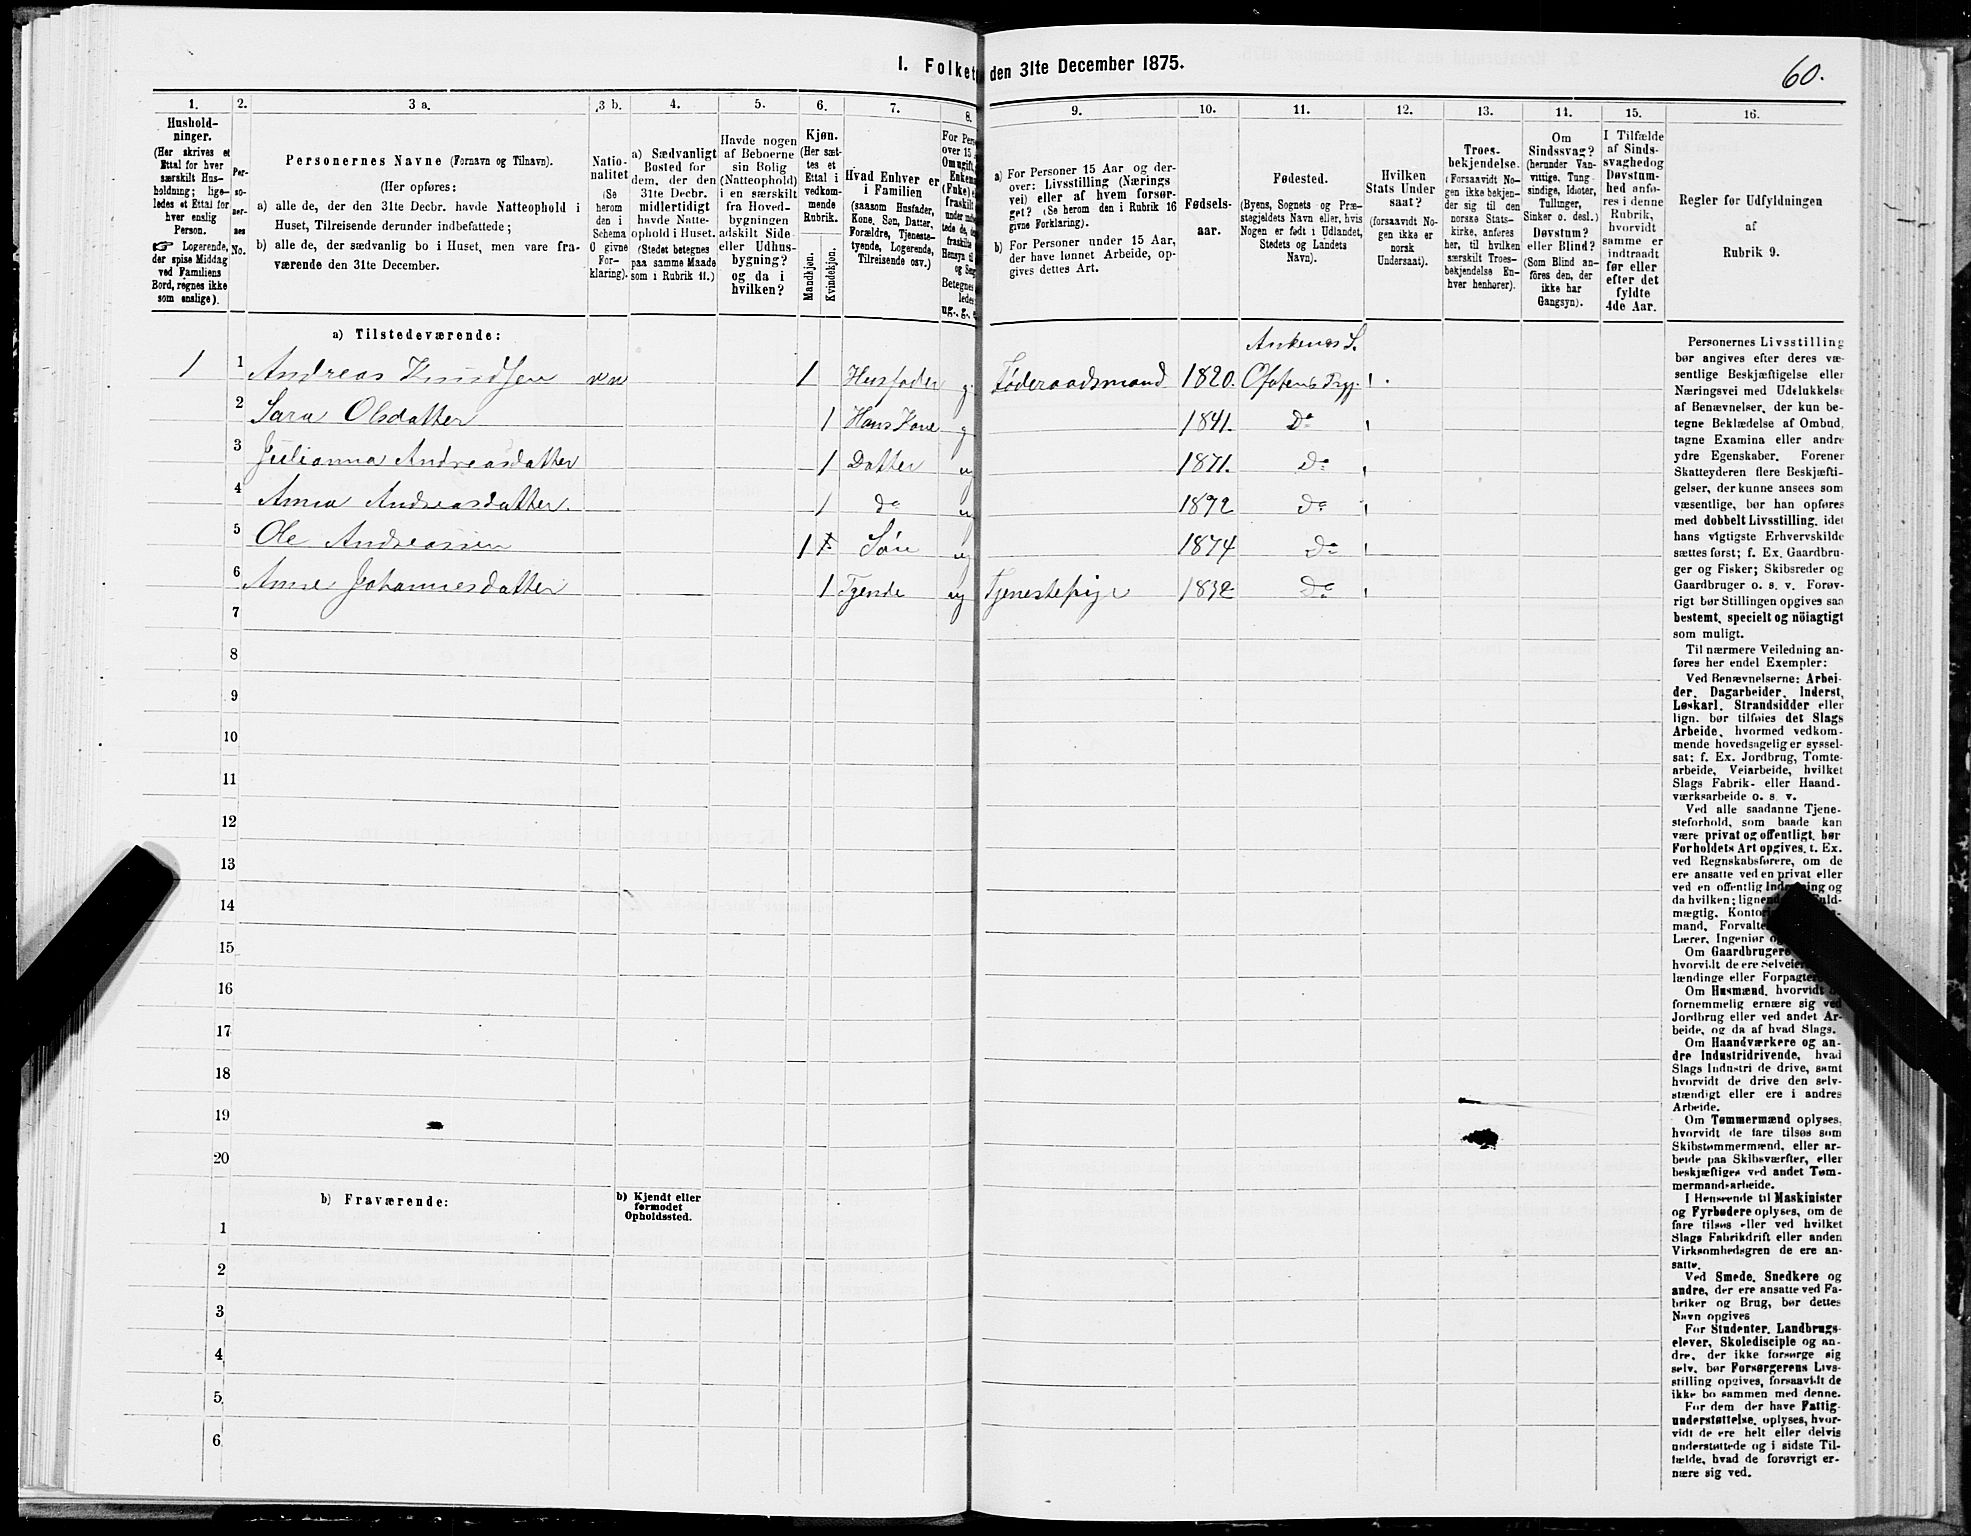 I. Folket den 31te December 1875.
60.
1. 2. 3 a. 3 b. 4. 5. 6. 7. 8. 9. 10. 11. 12. 13. 14. 15. 16.
Hushold-
ninger.
(Her skrives et
Ettal for hver
særskilt Hus-
holdning; lige-
ledes et Ettal for
hver enslig
Person.
☞ Logerende,
der spise Middag
ved Familiens
Bord, regnes ikke
som enslige).
Per-
so-
ner-
nes
No.
Personernes Navne (Fornavn og Tilnavn).
(Her opføres:
a) alle de, der den 31te Decbr. havde Natteophold i
Huset, Tilreisende derunder indbefattede;
b) alle de, der sædvanlig bo i Huset, men vare fra-
værende den 31te December.
Natio-
nalitet
(Se
herom
den i
Schema
O givne
For-
klaring).
a) Sædvanligt
Bosted for
dem, der den
31te Decbr.
midlertidigt
havde Natte-
ophold i Huset.
(Stedet betegnes
paa samme Maade
som i Rubrik 11.)
Havde nogen
af Beboerne
sin Bolig
(Natteophold)
i en særskilt
fra Hoved-
bygningen
adskilt Side-
eller Udhus-
bygning?
og da i
hvilken?
Kjøn.
(Her sæt-
tes et
Ettal i
vedkom-
mende
Rubrik.
Mandkjøn.
Kvindekjøn.
Hvad Enhver er
i Familien
(saasom Husfader,
Kone, Søn, Datter,
Forældre, Tjeneste-
tyende, Logerende,
Tilreisende osv.)
For Per
over 15
Omugift,
Enkema
(Fuke)
fraskilt
Betegnes
ledes
ug., g.,
a) For Personer 15 Aar og der-
over: Livsstilling (Nærings
vei) eller af hvem forsør-
get? (Se herom den i Rubrik 16
givne Forklaring).
b) For Personer under 15 Aar,
der have lønnet Arbeide, op-
gives dettes Art.
Fødsels-
aar.
Fødested.
(Byens, Sognets og Præ-
stegjeldets Navn eller, hvis
Nogen er født i Udlandet,
Stedets og Landets
Navn).
Hvilken
Stats Under
saat?
(forsaavidt No-
gen ikke er
norsk
Undersaat).
Troes-
bekjendelse.
(Forsaavidt No-
gen ikke bekjen-
der sig til den
norske Stats-
kirke, anføres
her, til hvilken
særskilt Troes-
bekjendelse En-
hver henhører).
Om
Sindssvag?
(herunder Van-
vittige, Tung-
sindige, Idioter,
Tullinger,
Sinker o. desl.)
Døvstum?
eller Blind?
(Som Blind an-
føres den, der
ikke har
Gangsyn).
I Tilfælde
af Sinds-
svaghed og
Døvstum-
hed anfø-
res i denne
Rubrik,
hvorvidt
samme er
indtraadt
før eller
efter det
fyldte
4de Aar.
Regler for Udfyldningen
af
Rubrik 9.
a) Tilstedeværende:
Ankenes S.
1 1 Andreas Knudsen nn 1 Husfader g. Føderaadsmand 1820. Ofotens Prgj.
2 Sara Olsdatter 1 Hans Kone g 1841. Do
3 Julianna Andreasdatter 1 Datter ug 1871. Do
4 Anna Andreasdatter. 1 do ug 1872 Do
5 Ole Andreassen 1 Søn ug 1874 Do
6 Anne Johannesdatter 1 Tyende ug Tjenestepige 1832 Do
7
8
9
10
11
12
13
14
15
16
17
18
19
20
b) Fraværende:
b) Kjendt eller
formodet
Opholdssted.
1
2
3
4
5
6
Personernes Livsstilling
bør angives efter deres væ-
sentlige Beskjæftigelse eller
Næringsvei med Udelukkelse
af Benævnelser, der kun be-
tegne Beklædelse af Ombud,
tagne Examina eller andre
ydre Egenskaber. Forener
Skatteyderen flere Beskjæfti-
gelser, der kunne ansees som
væsentlige, bør han opføres
med dobbelt Livsstilling, idet
hans vigtigste Erhvervskilde
sættes først; f. Ex. Gaardbru-
ger og Fisker; Skibsreder og
Gaardbruger o. s. v. Forøv-
rigt bør Stillingen opgives saa
bestemt, specielt og nöiagtigt
som muligt.
Til nærmere Veiledning an-
føres her endel Exempler:
Ved Benævnelserne: Arbei-
der, Dagarbeider, Inderst,
Løskarl, Strandsidder eller
lign. bør tilføies det Slags
Arbeide, hvormed vedkom-
mende hovedsagelig er syssel-
sat; f. Ex. Jordbrug, Tomte-
arbeide, Veiarbeide, hvilket
Slags Fabrik- eller Haand-
værksarbeide o. s. v.
Ved alle saadanne Tjene-
steforhold, som baade kan
være privat og offentligt, bør
Forholdets Art opgives, t. Ex.
ved Regnskabsførere, om de
ere ansatte ved en privat eller
ved en offentlig Indretning og
da hvilken; lignende Fuld-
mægtig, Kontori
mand, Forvalter
Lærer, Ingeniør og
Om Gaardbrugere
hvorvidt de ere Selveier
lændinge eller Forpagtere
Om Husmænd, hvorvidt
fornemmelig ernære sig ved
Jordbrug eller ved andet Ar-
beide, og da af hvad Slags.
Om Haandværkere og an-
dre Industridrivende, hvad
Slags Industri de drive, samt
hvorvidt de drive den selv-
stændigt eller ere i andres
Arbeide.
Om Tømmermænd oplyses,
hvorvidt de fare tilsøs som
Skibstømmermænd, eller ar-
beide paa Skibsværfter, eller
beskjæftiges ved andet Tøm-
mermandsarbeide.
I Henseende til Maskinister
og Fyrbødere oplyses, om de
fare tilsøs eller ved hvilket
Slags Fabrikdrift eller anden
Virksomhedsgren de ere an-
satte.
Ved Smede, Snedkere og
andre, der ere ansatte ved Fa-
briker og Brug, bør dettes
Navn opgives
For Studenter, Landbrugs-
elever, Skoledisciple og an-
dre, der ikke forsørge sig
selv, bør Forsørgerens Livs-
stilling opgives, forsaavidt de
ikke bo sammen med denne.
For dem der have Fattig-
understøttelse, oplyses, hvor-
vidt de ere helt eller delvis
understøttede og i sidste Til-
fælde, hvad de forøvrigt er-
nære sig ved.